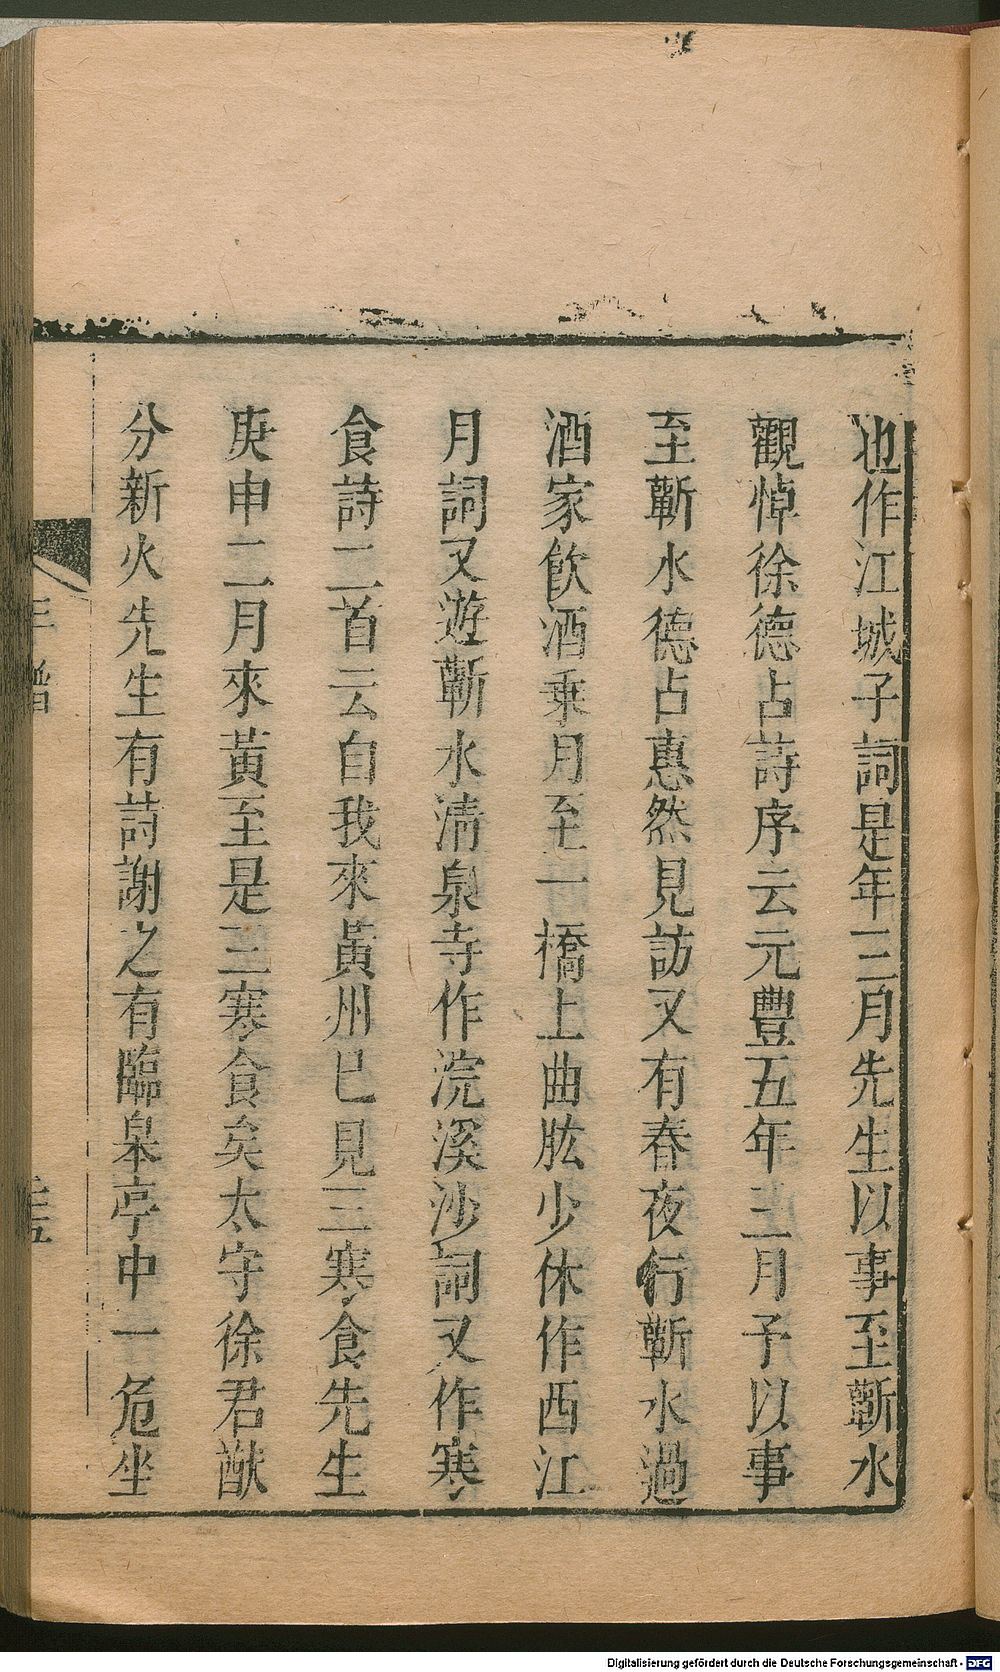 也作江城子詞是年三月先生以事至蘄水
觀悼徐德占詩序云元豐五年三月予以事
至蘄水德占惠然見訪又有春夜行蘄水過
酒家飲酒乘月至一橋上曲肱少休作西江
月詞又遊蘄水清泉寺作浣溪沙詞又作寒
食詩二首云自我來黃州已見三寒食先生
庚申二月來黃至是三寒食矣太守徐君猷
分新火先生有詩謝之有臨皋亭中一危坐
年譜
Digitalisierung gefördert durch die Deutsche Forschungsgemeinschaft - DFG